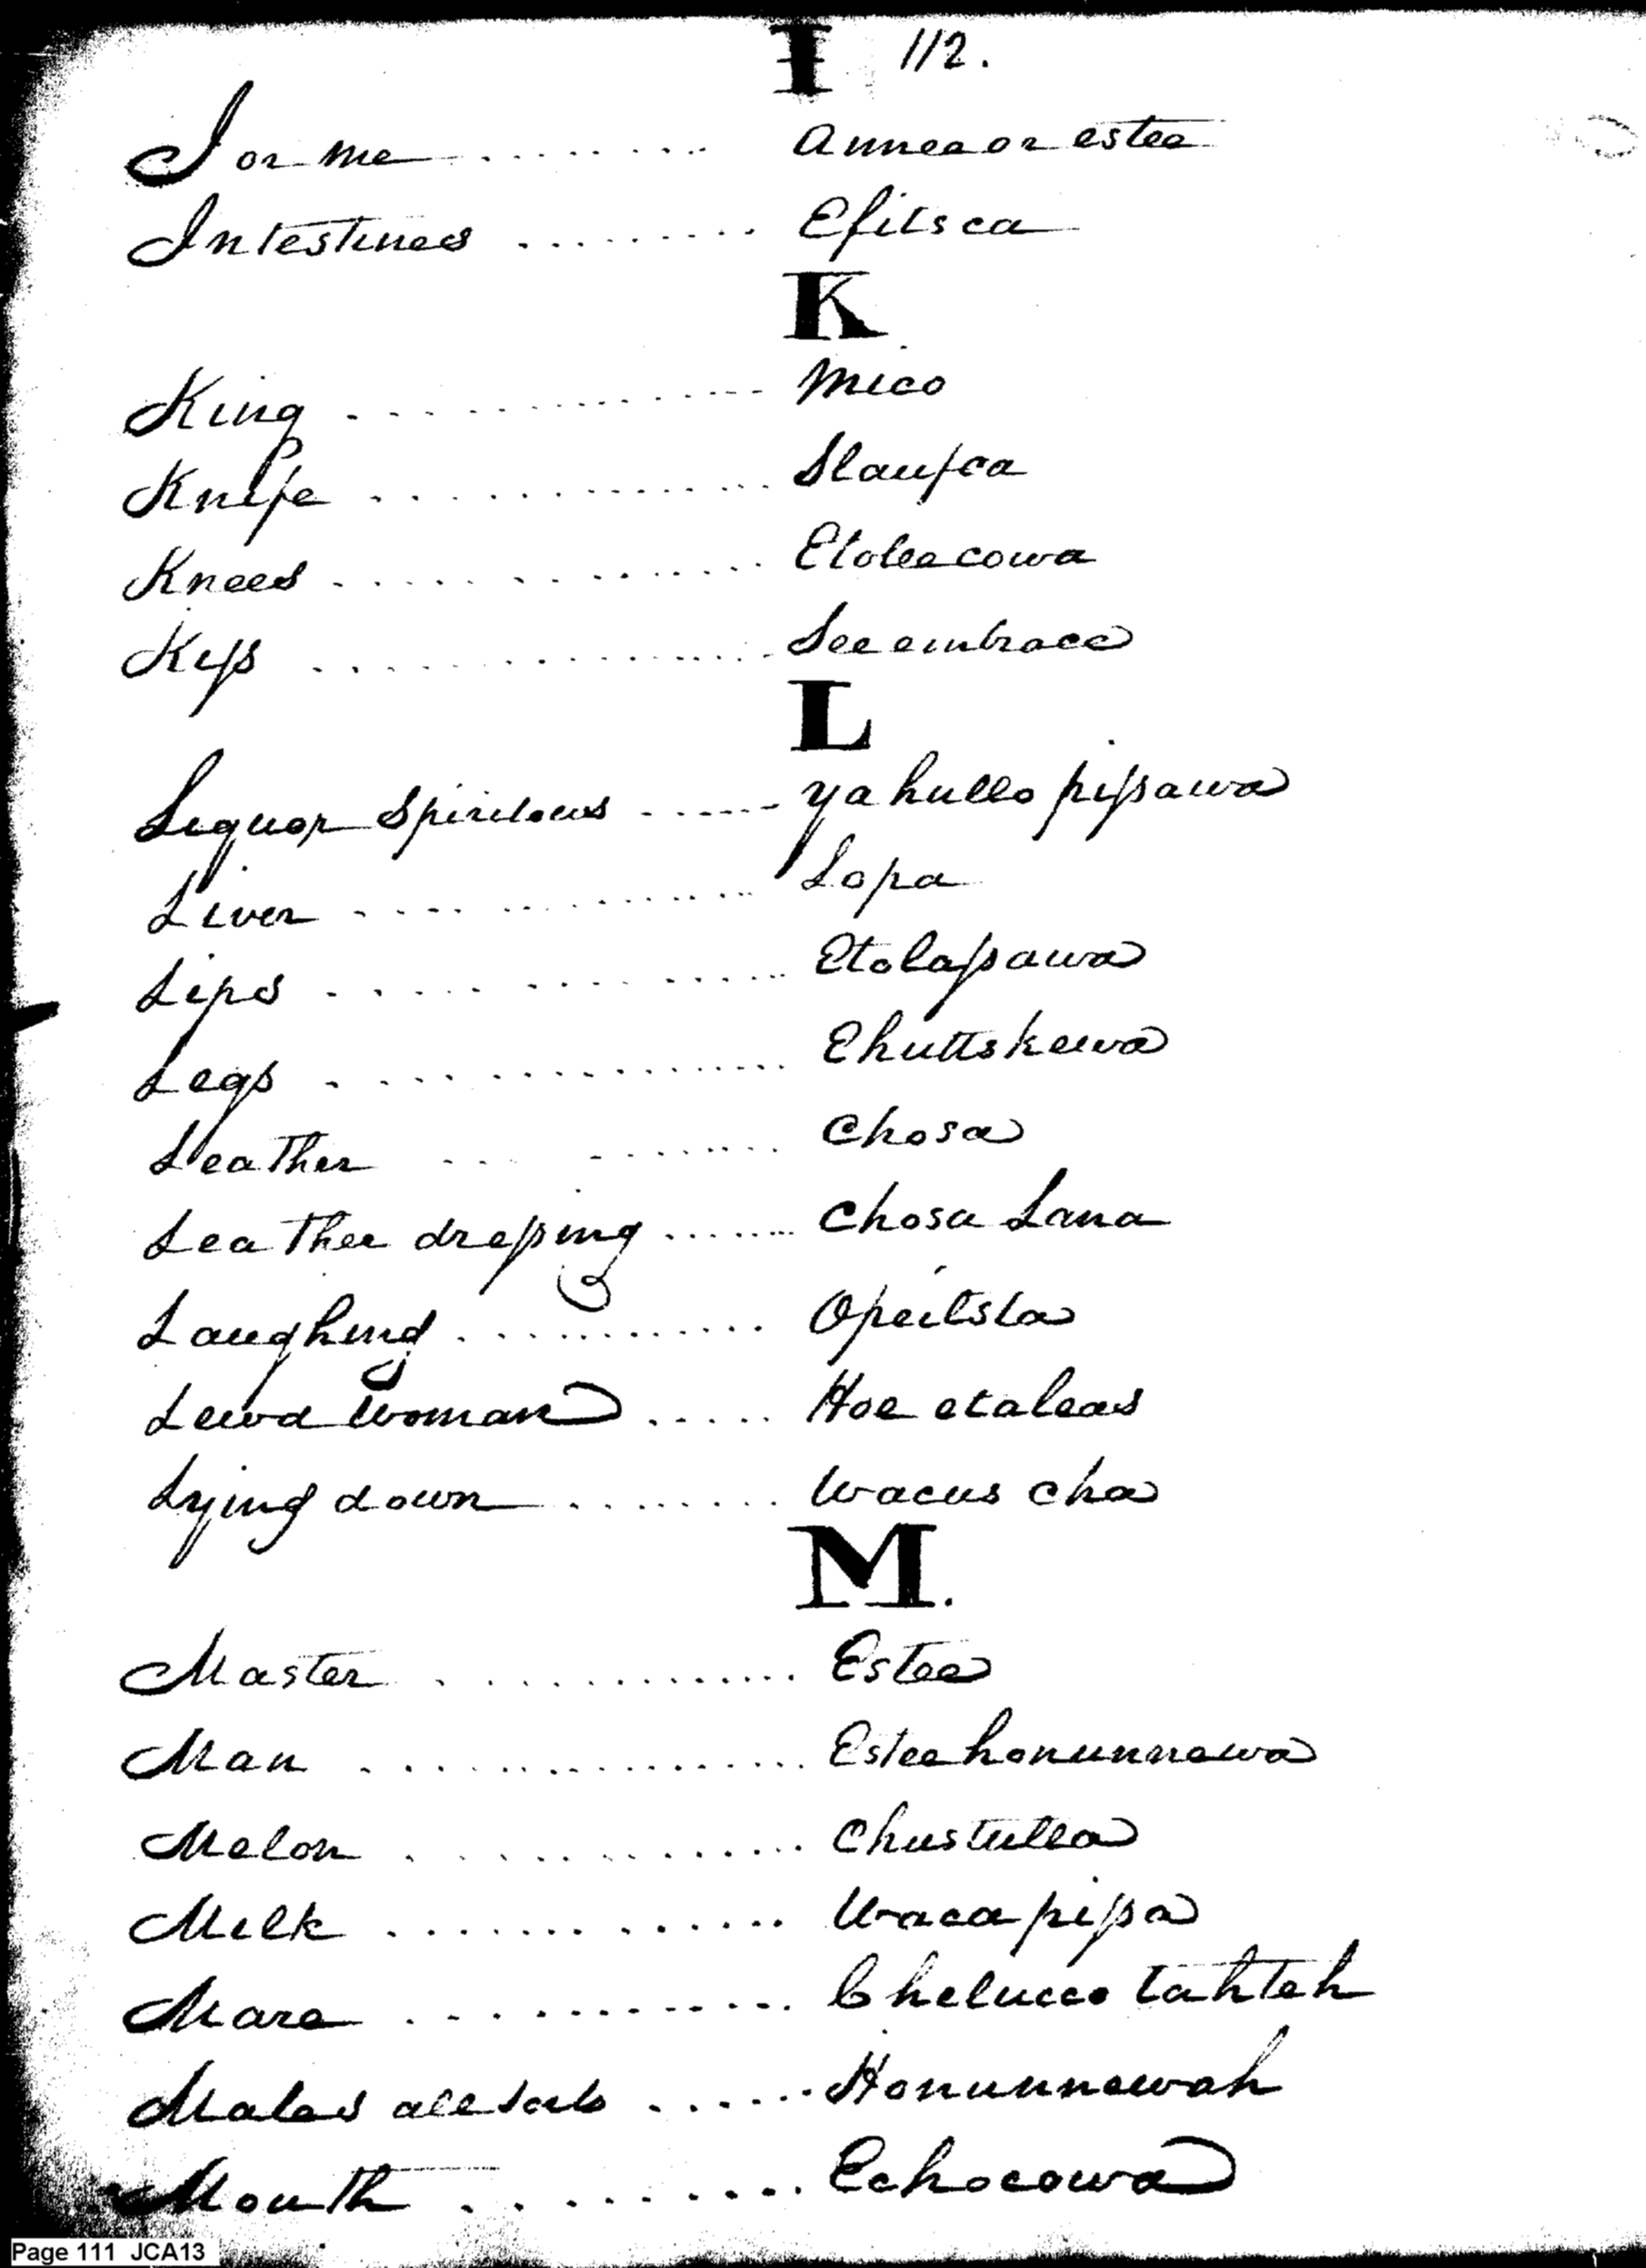 I 112.
I or me ........ Annee or estee
Intestines ......... Efitsca
K
King .............. Mico
Knife .............. Slaufca
Knees .............. Etolee cowa
Kiss .............. See embrace
L
Liquor Spiritous ...... ya hullo pissawa
Liver .............. Lopa
Lips .............. Etolassawa
Legs .............. Ehuttskewa
Leather .......... Chosa
Leather dressing ....... Chosa Lana
Laughing ............ Opeitsta
Lewd woman ..... Hoe etaleas
Lying down ........ Wacus cha
M.
Master ............ Estee
Man .............. Estee honunnewa
Melon ............ Chustulla
Milk ............ Waca pissa
Mare ........... Chelucco tahteh
Males all sorts ...... Honunnewah
Mouth ......... Echocowa
Page 111 JCA13